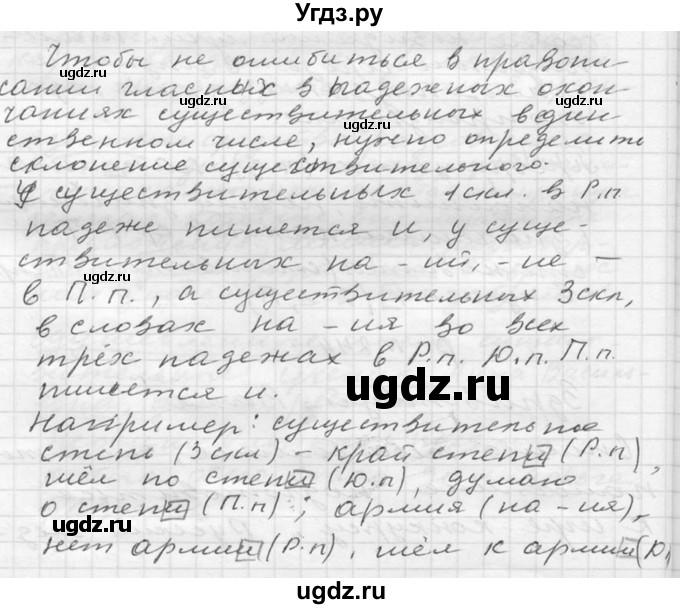 Угдз.ру
Чтобы не ошибиться в правопи-
сании гласных в падежных окон-
чаниях существительных в един-
ственном числе, нужно определить
склонение существительного.
У существительных 1 скл. в Р.п
падеже пишется и, у суще-
ствительных на -ий, -ие -
в П.п., а существительных 3 скл,
в словах на -ия во всех
трёх падежах в Р.п. Ю.п. П.п.
пишется и.
Например: существительное
степь (3 скл) - край степи (Р.п),
шёл по степи (Ю.п), думаю
о степи (П.п); армия (на -ия),
нет армии (Р.п), шёл к армии (Ю,
ugdz.ru
ugdz.ru
ugdz.ru
ugdz.ru
ugdz.ru
ugdz.ru
ugdz.ru
ugdz.ru